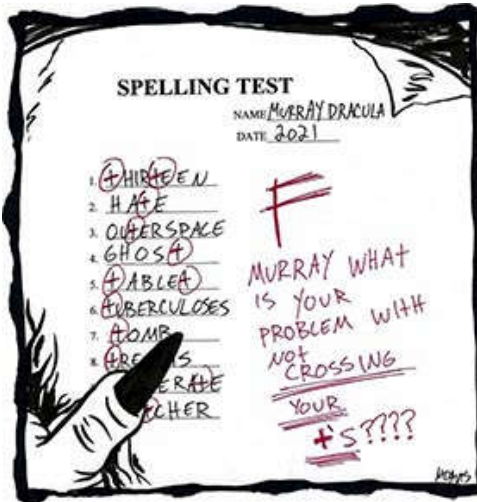 SPELLING TEST
NAME MURRAY DRACULA
DATE 2021
1. tHIRtEEN
2. HAtE
3. OUtERSPACE
4. GHOSt
5. tABLEt
6. tUBERCULOSES
7. tOMB
8.
F
MURRAY WHAt
IS YOUR
PROBLEM WItH
NOt
CROSSING
YOUR
t'S????